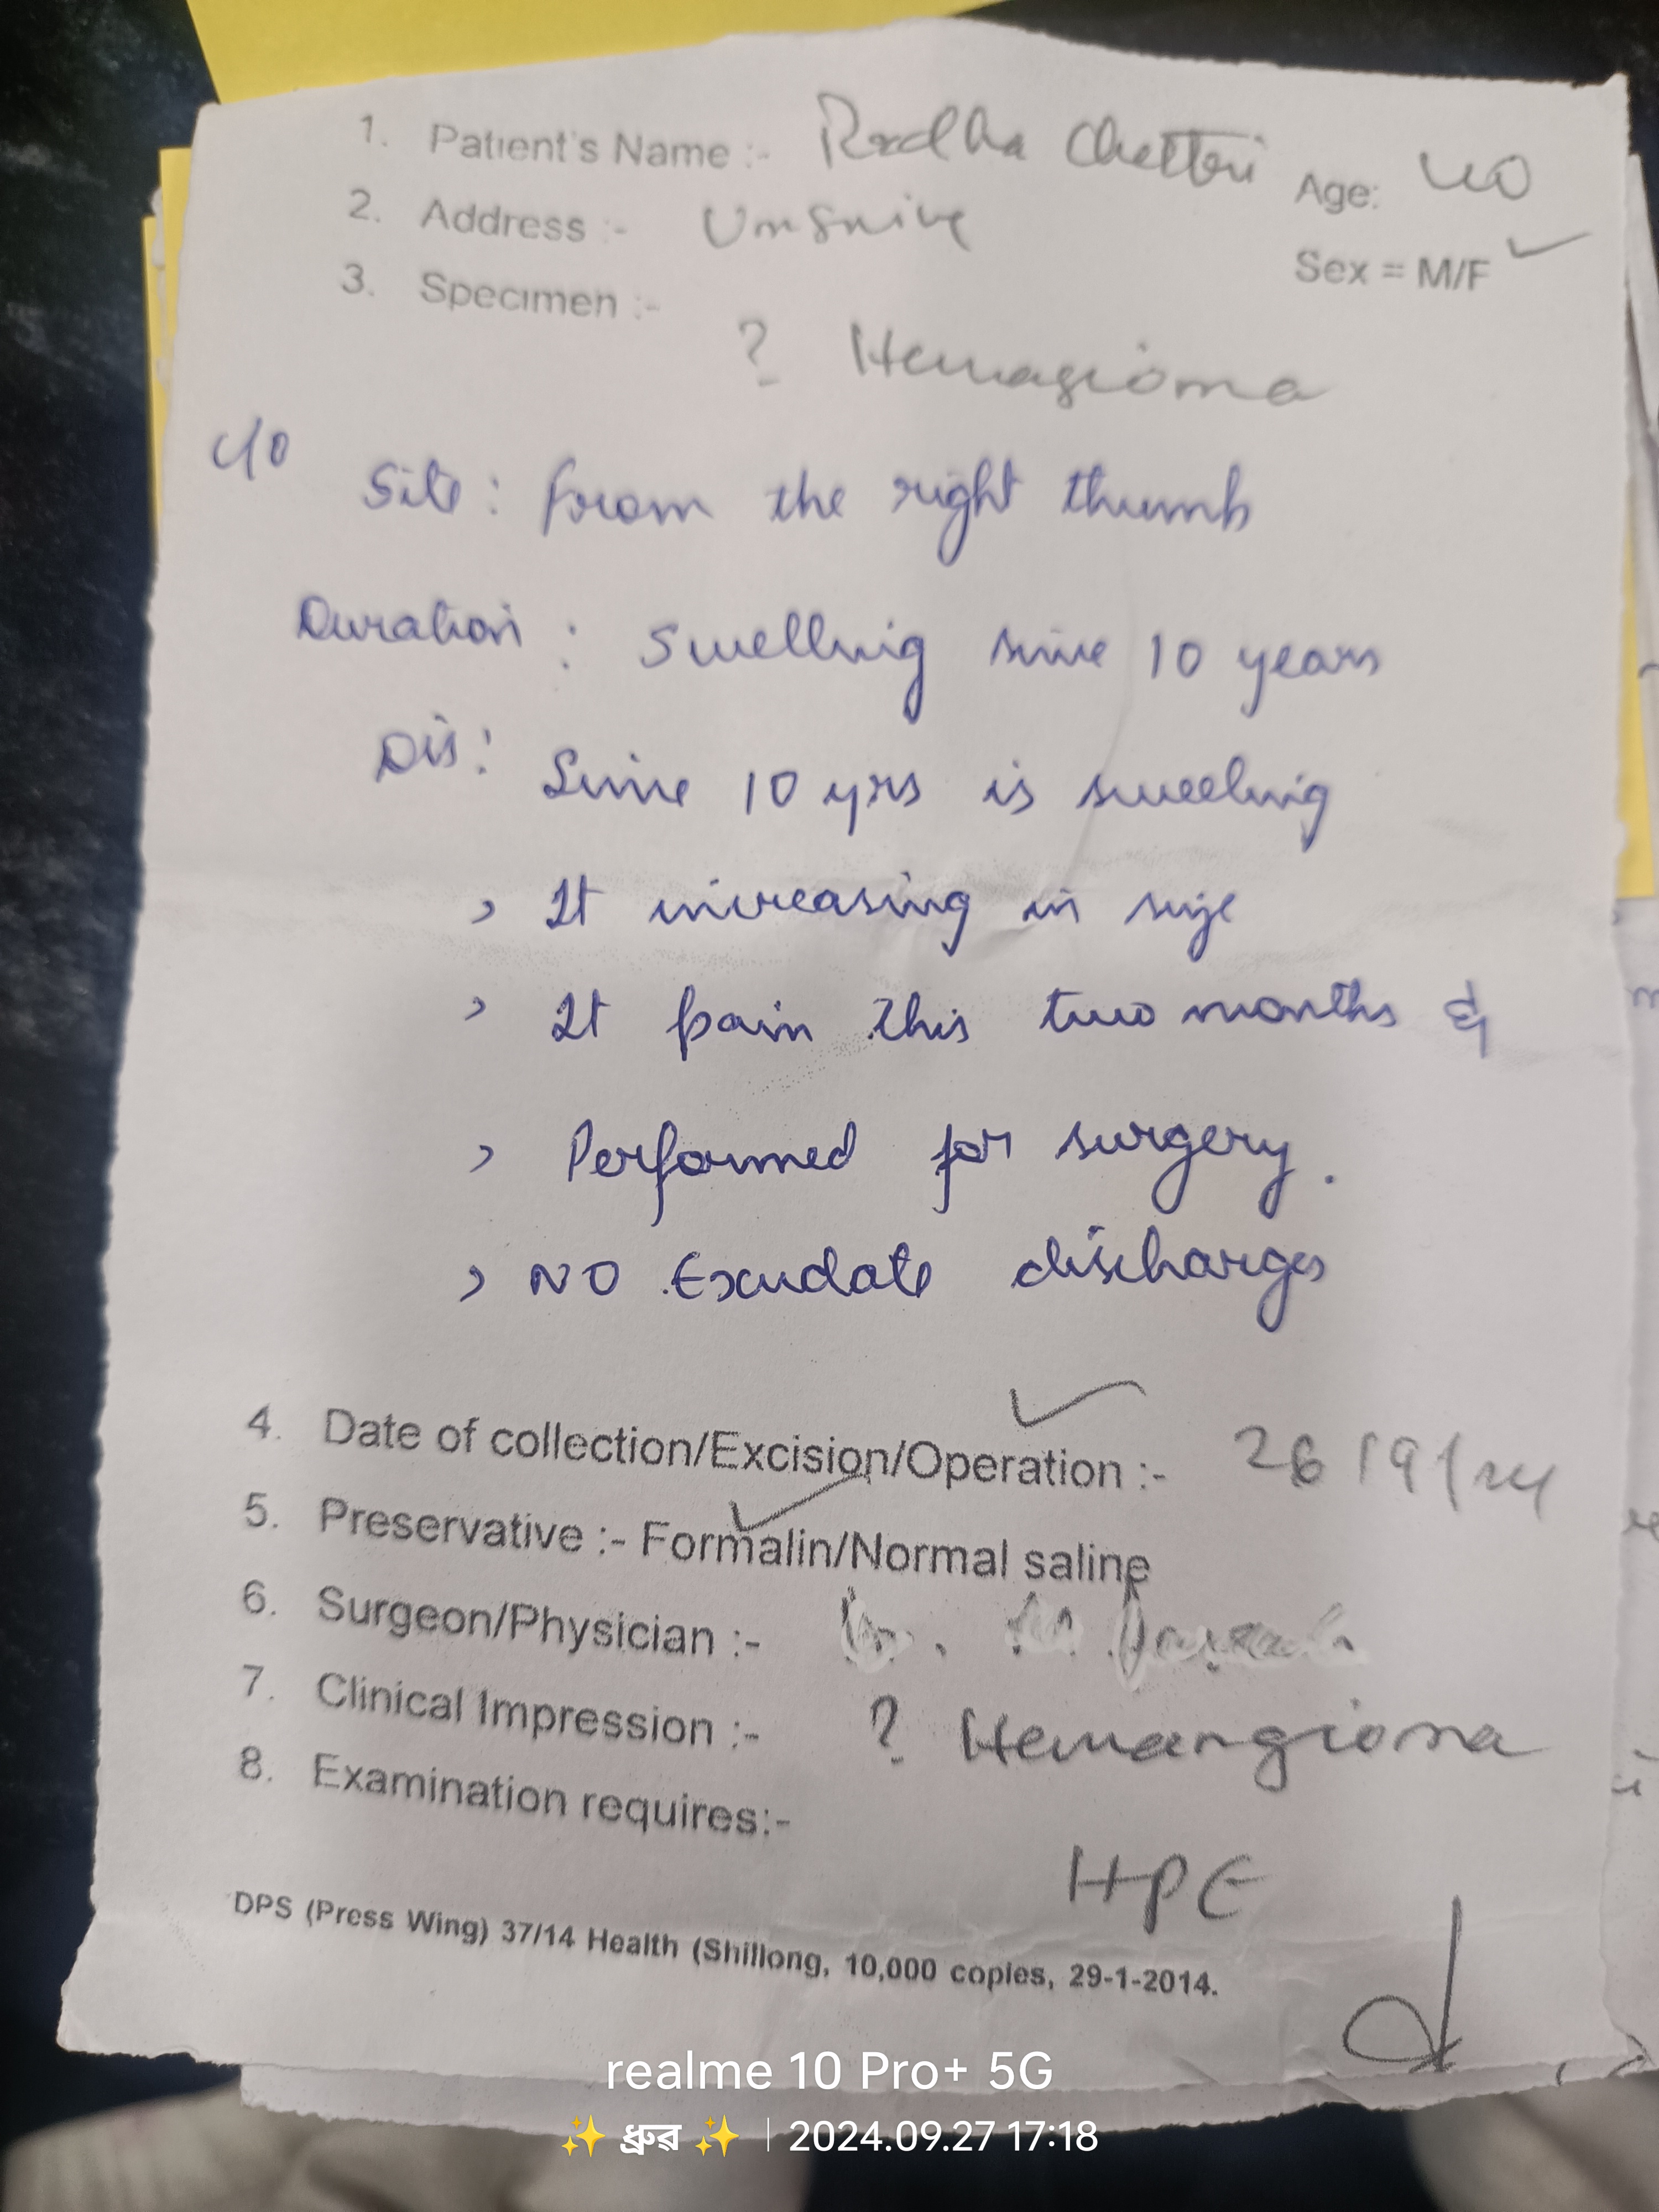 1. Patient's Name :- Radha Chettri Age: 40
2. Address :- Umsning
Sex = M/F ✓
3. Specimen :-
? Hemagioma
c/o
Site : from the right thumb
Duration : Swelling since 10 years
Dis : Since 10 yrs is sweeling
› It increasing in size
› It pain this two months &
› Performed for surgery.
› NO Exudate discharges
4. Date of collection/Excision/Operation :- 26/9/24
5. Preservative :- Formalin/Normal saline
6. Surgeon/Physician :- Dr.
7. Clinical Impression :- ? Hemangioma
8. Examination requires:-
HPE
DPS (Press Wing) 37/14 Health (Shillong, 10,000 copies, 29-1-2014.
realme 10 Pro+ 5G
✨ ধ্রুৱ ✨ | 2024.09.27 17:18